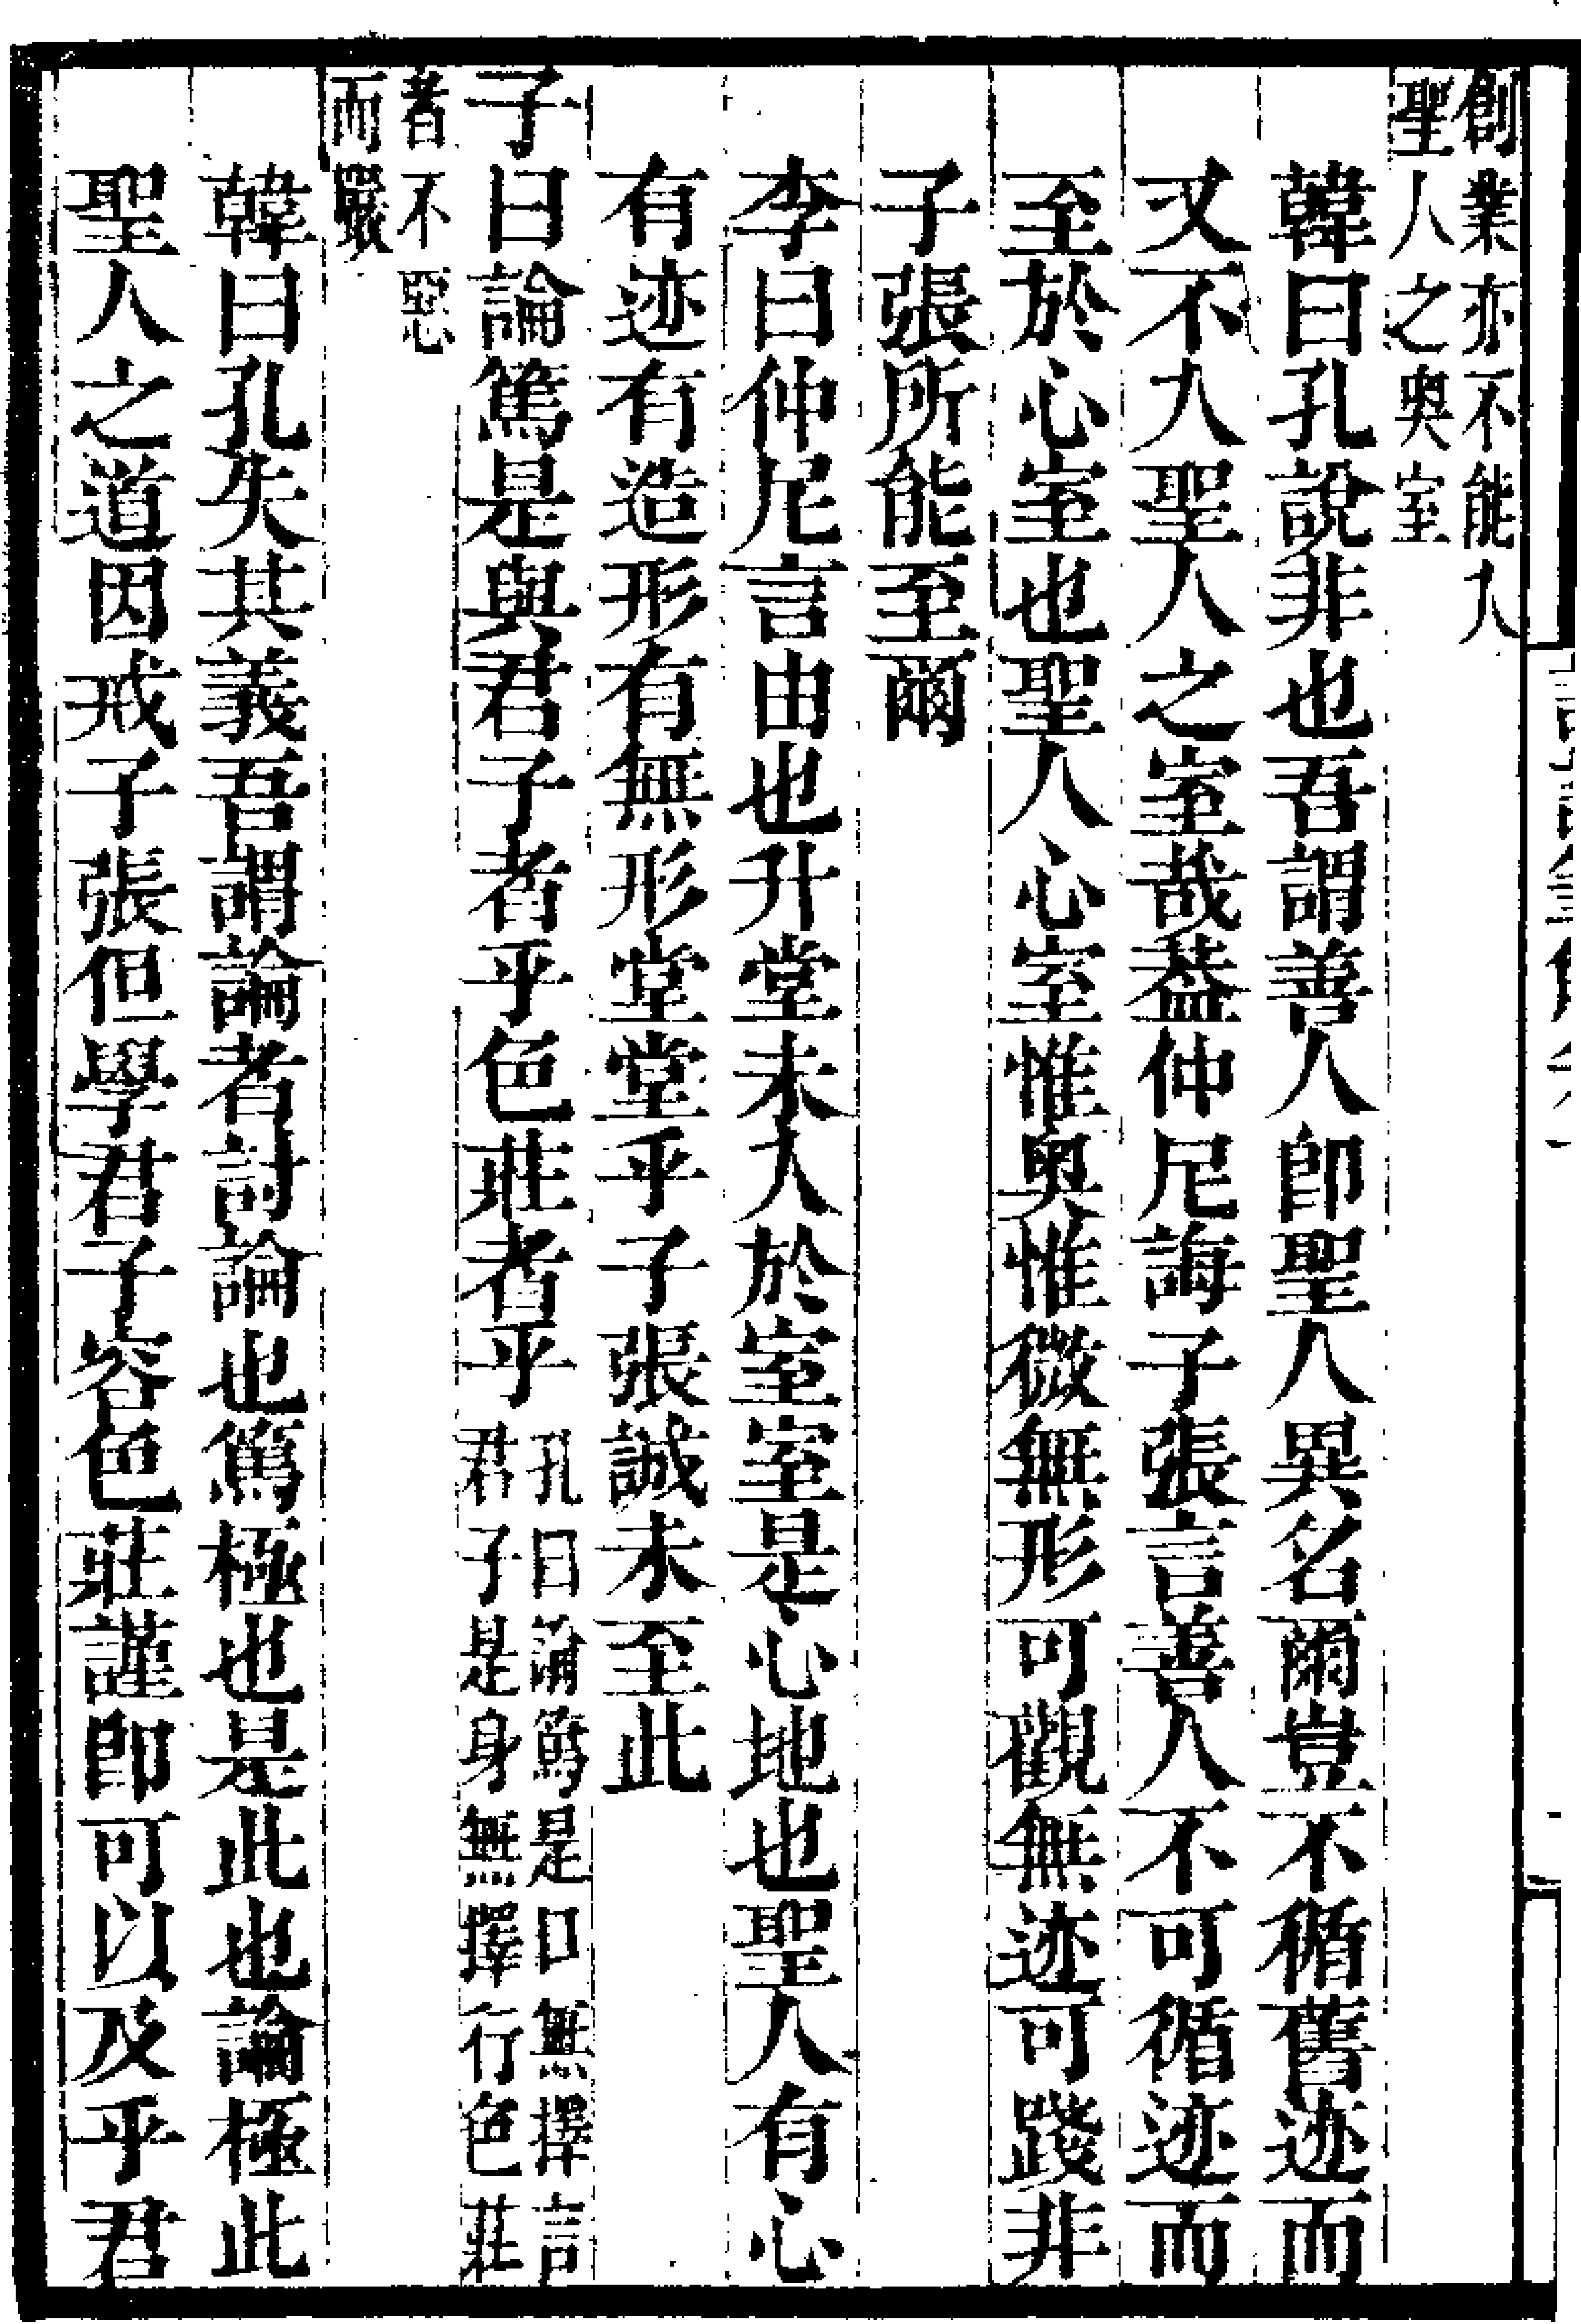 創業亦不能入
聖人之奥室
韓曰孔説非也吾謂善人卽聖人異名爾豈不循舊迹而
又不入聖人之室哉葢仲尼誨子張言善人不可循迹而
至於心室也聖人心室惟奥惟微無形可觀無迹可踐非
子張所能至爾
李曰仲尼言由也升堂未入於室室是心地也聖人有心
有迹有造形有無形堂堂乎子張誠未至此
子曰論篤是與君子者乎色莊者乎孔曰論篤是口無擇言
君子是身無擇行色莊
者不惡
而嚴
韓曰孔失其義吾謂論者討論也篤極也是此也論極此
聖人之道因戒子張但學君子容色莊謹卽可以及乎君